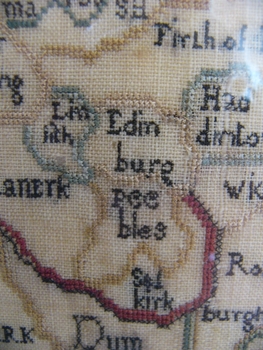 ma
Firth of
Edin
burg
Lin
lith
Had
dinto
LANERK
pee
bles
WK
Sel
kirk
Ro
burgh
RK
Dum